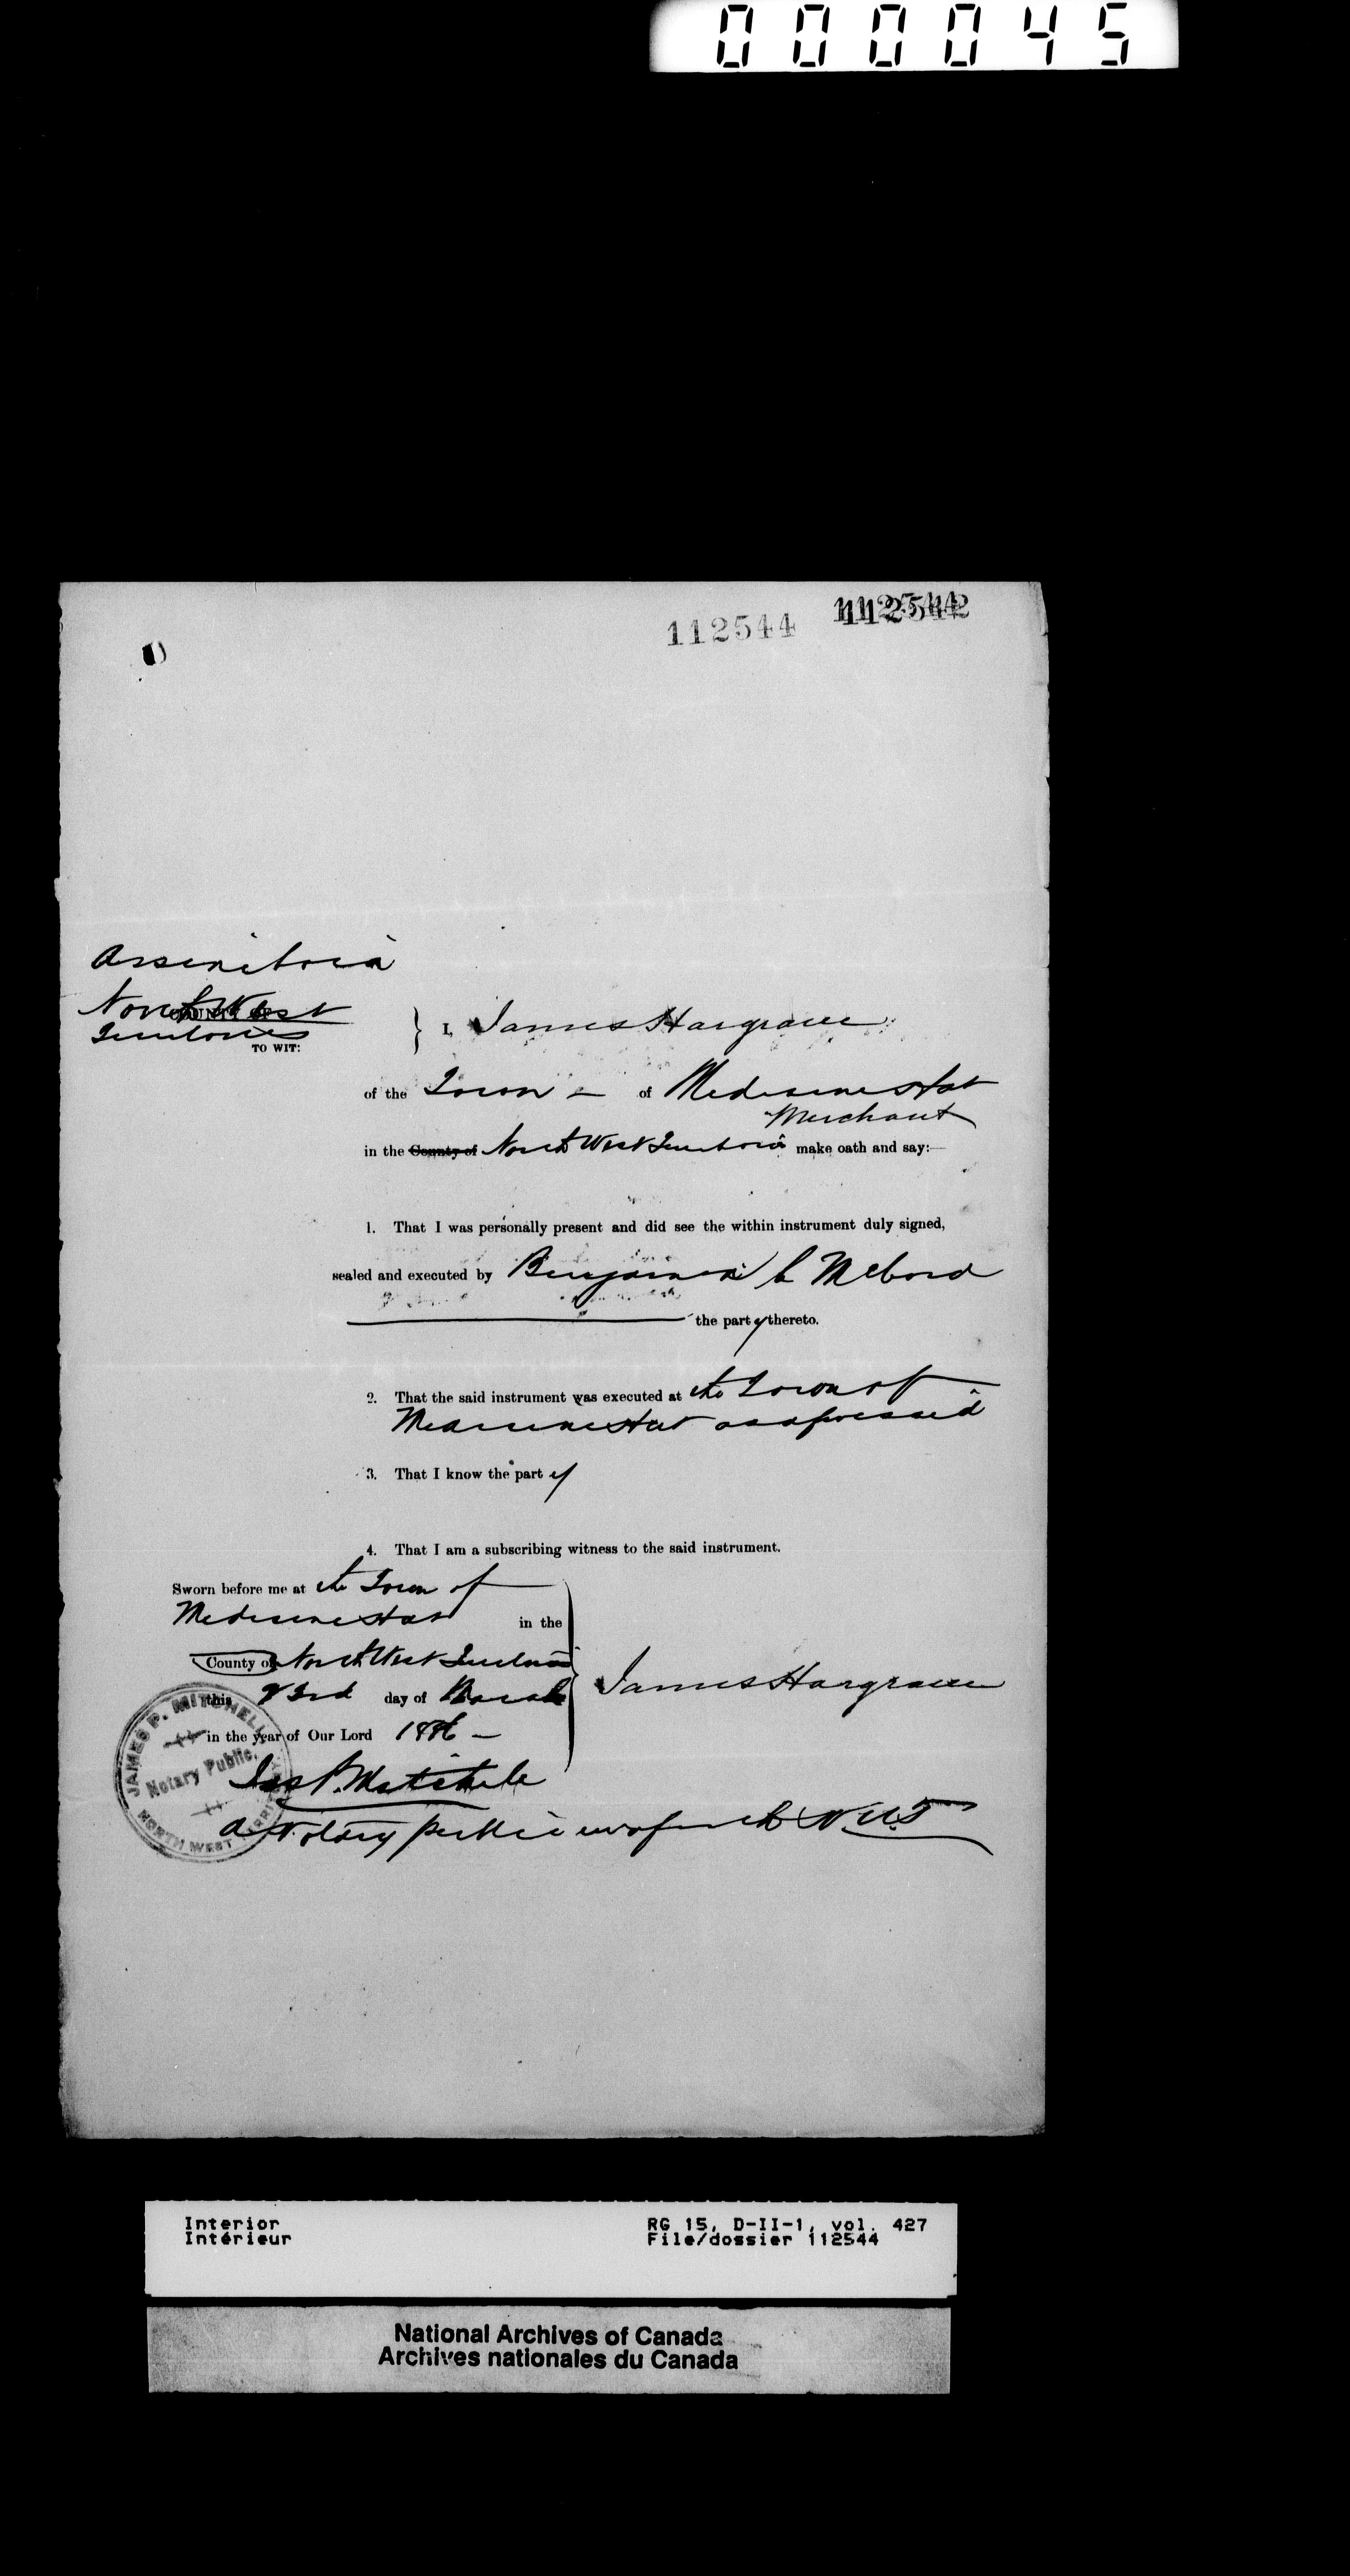 000045
112544
Assiniboia
North West
COUNTY OF
Territories
TO WIT:
I, James Hargrave
of the Town of Medicine Hat
Merchant
in the County of North West Territories make oath and say:—
1. That I was personally present and did see the within instrument duly signed,
sealed and executed by Benjamin C McCord
the party thereto.
2. That the said instrument was executed at the Town of
Medicine Hat as aforesaid
3. That I know the party
4. That I am a subscribing witness to the said instrument.
Sworn before me at the Town of
Medicine Hat in the
County of North West Territories
this 23rd day of March
in the year of Our Lord 1886
James Hargrave
JAMES P. MITCHELL
Notary Public,
NORTH WEST TERRITORIES
Jas P. Mitchell
A Notary Public in & for the N.W.T
Interior
Intérieur
RG 15, D-II-1, vol. 427
File/dossier 112544
National Archives of Canada
Archives nationales du Canada